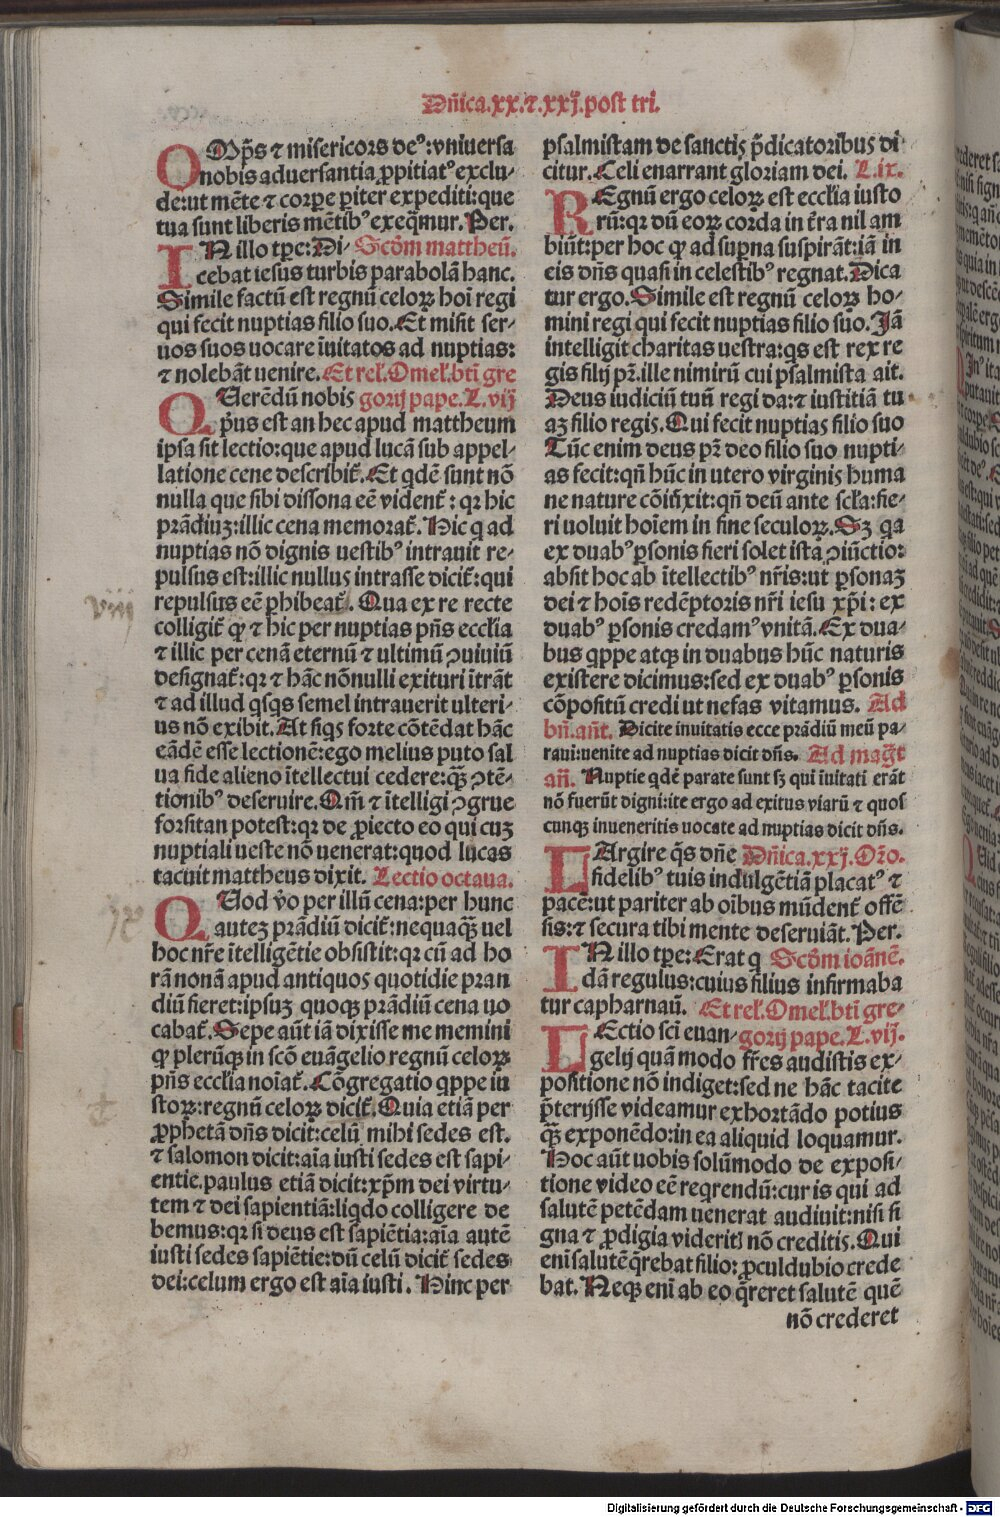 Dñica.xx.⁊.xxj.post tri.
OMp̄s ⁊ misericors deꝰ:vniuersa
nobis aduersantia ꝓpitiatꝰ exclu-
de:ut mēte ⁊ corpe ꝑiter expediti:que
tua sunt liberis mētibꝰ exeq̄mur. Per.
IN illo tꝑe: Di- Scḋm mattheū.
cebat iesus turbis parabolā hanc.
Simile factū est regnū celoꝝ hoī regi
qui fecit nuptias filio suo. Et misit ser-
uos suos uocare īuitatos ad nuptias:
⁊ nolebāt uenire. Et rel. Omel. bti gre
QUerēdū nobis gorij pape. L. vij
p̄us est an hec apud mattheum
ipsa sit lectio: que apud lucā sub appel-
latione cene describit̄. Et qdē sunt nō
nulla que sibi dissona eē vident̄: qꝛ hic
prādiuꝫ: illic cena memorat̄. Hic q ad
nuptias nō dignis uestibꝰ intrauit re-
pulsus est: illic nullus intrasse dicit̄: qui
repulsus eē ꝑhibeat̄. Qua ex re recte
colligit̄ ꝙ ⁊ hic per nuptias pn̄s ecclia
⁊ illic per cenā eternū ⁊ ultimū ꝯuiuiū
designat̄: qꝛ ⁊ hāc nōnulli exituri ītrāt
⁊ ad illud qsqs semel intrauerit ulteri-
us nō exibit. At siqs forte cōtēdat hāc
eādē esse lectionē: ego melius puto sal
ua fide alieno ītellectui cedere: qꝫ̄ ꝯtē-
tionibꝰ deseruire. Qm̄ ⁊ ītelligi ꝯgrue
forsitan potest: qꝛ de ꝓiecto eo qui cuꝫ
nuptiali ueste nō uenerat: quod lucas
tacuit mattheus dixit. Lectio octaua.
QUod v̊o per illū cena: per hunc
auteꝫ prādiū dicit̄: nequaqꝫ̄ uel
hoc nr̄e ītelligētie obsistit: qꝛ cū ad ho
rā nonā apud antiquos quotidie pran
diū fieret: ipsuꝫ quoqꝫ prādiū cena uo
cabat̄. Sepe aūt iā dixisse me memini
ꝙ plerūqꝫ in scō euāgelio regnū celoꝝ
pn̄s ecclia noiat̄. Cōgregatio qppe iu
stoꝝ: regnū celoꝝ dicit̄. Quia etiā per
ꝓphetā dn̄s dicit: celū mihi sedes est.
⁊ salomon dicit: aīa iusti sedes est sapi-
entie. paulus etiā dicit: xp̄m dei virtu-
tem ⁊ dei sapientiā: liqdo colligere de
bemus: qꝛ si deus est sapiētia: aīa autē
iusti sedes sapiētie: dū celū dicit̄ sedes
dei: celum ergo est aīa iusti. Hinc per
psalmistam de sanctis p̄dicatoribus di
citur. Celi enarrant gloriam dei. L. ix.
REgnū ergo celoꝝ est ecclia iusto
rū: qꝛ dū eoꝝ corda in tr̄a nil am
biūt: per hoc ꝙ ad supna suspirāt: iā in
eis dn̄s quasi in celestibꝰ regnat. Dica
tur ergo. Simile est regnū celoꝝ ho-
mini regi qui fecit nuptias filio suo. Jā
intelligit charitas uestra: qs est rex re
gis filij pr̄. ille nimirū cui psalmista ait.
Deus iudiciū tuū regi da: ⁊ iustitiā tu
aꝫ filio regis. Qui fecit nuptias filio suo
Tūc enim deus pr̄ deo filio suo nupti-
as fecit: qn̄ hūc in utero virginis huma
ne nature cōiūxit: qn̄ deū ante scla: fie-
ri uoluit hoīem in fine seculoꝝ. Sꝫ qa
ex duabꝰ ꝑsonis fieri solet ista ꝯiūctio:
absit hoc ab ītellectibꝰ nr̄is: ut ꝑsonaꝫ
dei ⁊ hoīs redēptoris nr̄i iesu xp̄i: ex
duabꝰ ꝑsonis credamꝰ vnitā. Ex dua-
bus qppe atqꝫ in duabus hūc naturis
existere dicimus: sed ex duabꝰ ꝑsonis
cōpositū credi ut nefas vitamus. Ad
bn̄. an̄t. Dicite inuitatis ecce prādiū meū pa-
raui: uenite ad nuptias dicit dn̄s. Ad maḡt
an̄. Nuptie qdē parate sunt sꝫ qui īuitati erāt
nō fuerūt digni: ite ergo ad exitus viarū ⁊ quos
cunqꝫ inueneritis uocate ad nuptias dicit dn̄s.
LArgire q̄s dn̄e Dñica. xxj. Oro.
fidelibꝰ tuis indulgētiā placatꝰ ⁊
pacē: ut pariter ab oībus mūdent̄ offē
sis: ⁊ secura tibi mente deseruiāt. Per.
IN illo tꝑe: Erat q Scḋm ioānē.
dā regulus: cuius filius infirmaba
tur capharnaū. Et rel. Omel. bti gre-
LEctio sci euan- gorij pape. L. vij.
gelij quā modo ffes audistis ex-
positione nō indiget: sed ne hāc tacite
p̄terijsse videamur exhortādo potius
qꝫ̄ exponēdo: in ea aliquid loquamur.
Hoc aūt uobis solūmodo de exposi-
tione video eē reqrendū: cur is qui ad
salutē petēdam uenerat audiuit: nisi si
gna ⁊ ꝓdigia videritis nō creditis. Qui
eni salutē q̄rebat filio: ꝓculdubio crede
bat. Neqꝫ eni ab eo q̄reret salutē quē
nō crederet
viij
Digitalisierung gefördert durch die Deutsche Forschungsgemeinschaft - DFG